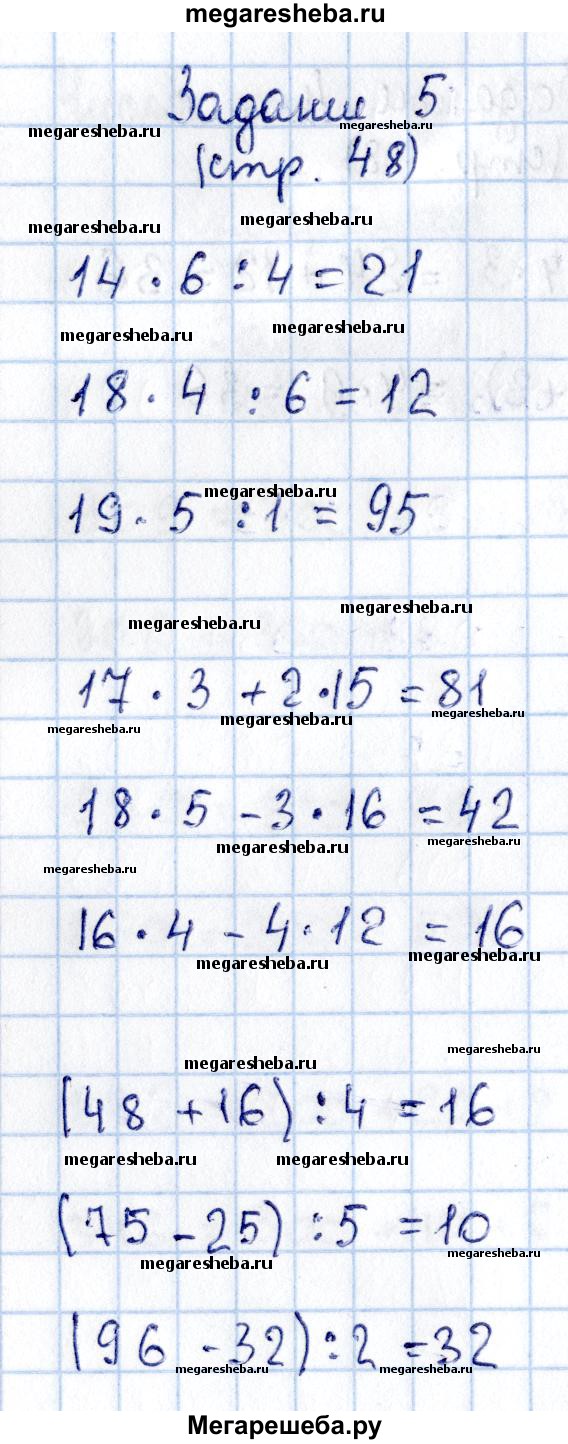 megaresheba.ru
Задание 5
megaresheba.ru megaresheba.ru
(стр. 48)
megaresheba.ru megaresheba.ru
14 · 6 : 4 = 21
megaresheba.ru megaresheba.ru
18 · 4 : 6 = 12
megaresheba.ru
19 · 5 : 1 = 95
megaresheba.ru megaresheba.ru
17 · 3 + 2 · 15 = 81
megaresheba.ru megaresheba.ru megaresheba.ru
18 · 5 - 3 · 16 = 42
megaresheba.ru megaresheba.ru megaresheba.ru
16 · 4 - 4 · 12 = 16
megaresheba.ru megaresheba.ru
megaresheba.ru megaresheba.ru
(48 + 16) : 4 = 16
megaresheba.ru megaresheba.ru
(75 - 25) : 5 = 10
megaresheba.ru megaresheba.ru
(96 - 32) : 2 = 32
megaresheba.ru megaresheba.ru
Мегарешеба.ру